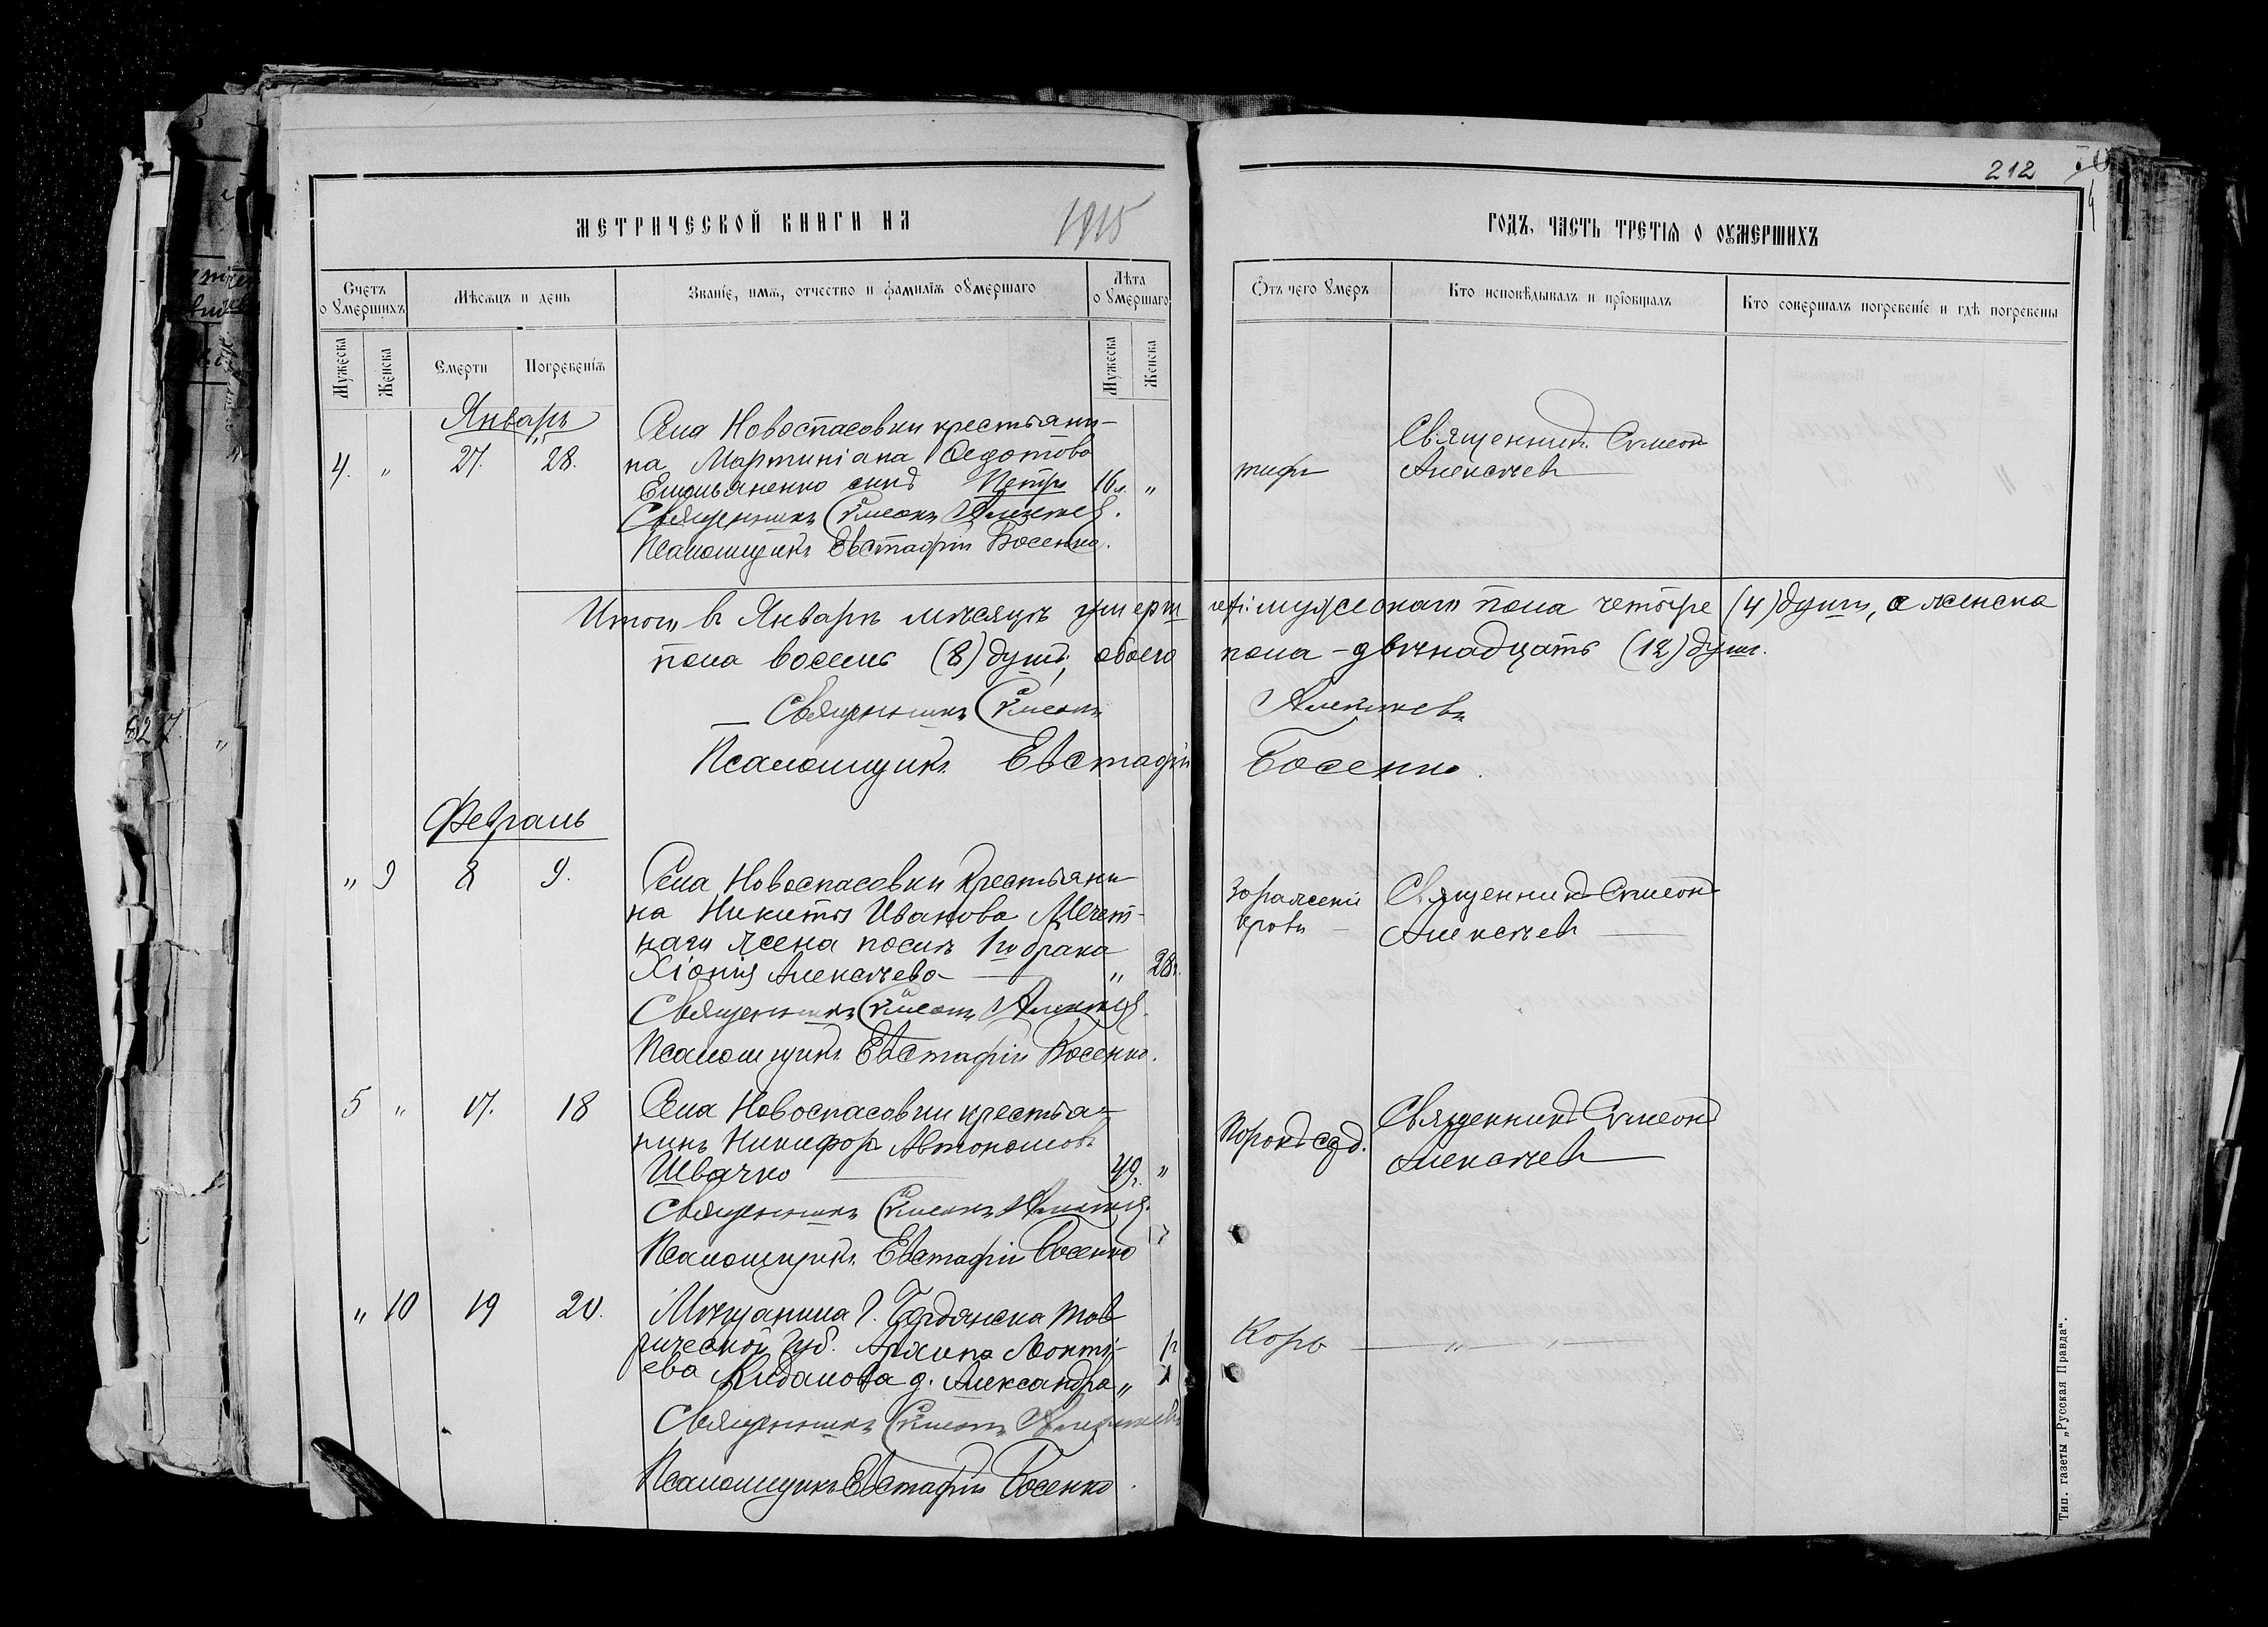 212
МЕТРИЧЕСКОЙ КНИГИ НА 1915 ГОДЪ, ЧАСТЬ ТРЕТІЯ О ОУМЕРШИХЪ
Счетъ о умершихъ
Мѣсяцъ и день
Званіе, имя, отчество и фамилія оумершаго
Лѣта о умершаго
Отъ чего умеръ
Кто исповѣдывалъ и пріобщалъ
Кто совершалъ погребеніе и гдѣ погребены
Мужеска
Женска
Смерти
Погребенія
Мужеска
Женска
Январь
4. " 27. 28.
Села Новоспасовки крестьяни-
на Мартиніана Федотова
Емельяненко сынъ Петръ 16л. "
Священникъ Сѵмеонъ Алексѣев.
Псаломщикъ Евстафій Косенко.
тифъ
Священникъ Сѵмеонъ
Алексѣевъ
Итого въ Январѣ мѣсяцѣ умерш
ихъ: мужескаго пола четыре (4) души, а женска
пола восемь (8) душъ, обоего
пола - двѣнадцать (12) душъ.
Священникъ Сѵмеонъ Алексѣевъ
Псаломщикъ Евстафій Косенко.
Февраль
" 9 8 9.
Села Новоспасовки крестьяни
на Никиты Иванова Мечет-
наго жена послѣ 1го брака
Хіонія Алексѣева " 28л.
Священникъ Сѵмеонъ Алексѣев.
Псаломщикъ Евстафій Косенко.
Зараженіе
крови
Священникъ Сѵмеонъ
Алексѣевъ
5 " 17. 18
Села Новоспасовки крестья-
нинъ Никифоръ Автономовъ
Швачко 49. "
Священникъ Сѵмеонъ Алексѣев.
Псаломщикъ Евстафій Косенко
Порокъ серд.
Священникъ Сѵмеонъ
Алексѣевъ
" 10 19 20.
Мѣщанина г. Бердянска Тав
рической губ. Архипа Леонті-
ева д. Александра "
Священникъ Сѵмеонъ Алексѣевъ
Псаломщикъ Евстафій Косенко.
Корь " "
Тип. газеты „Русская Правда“.